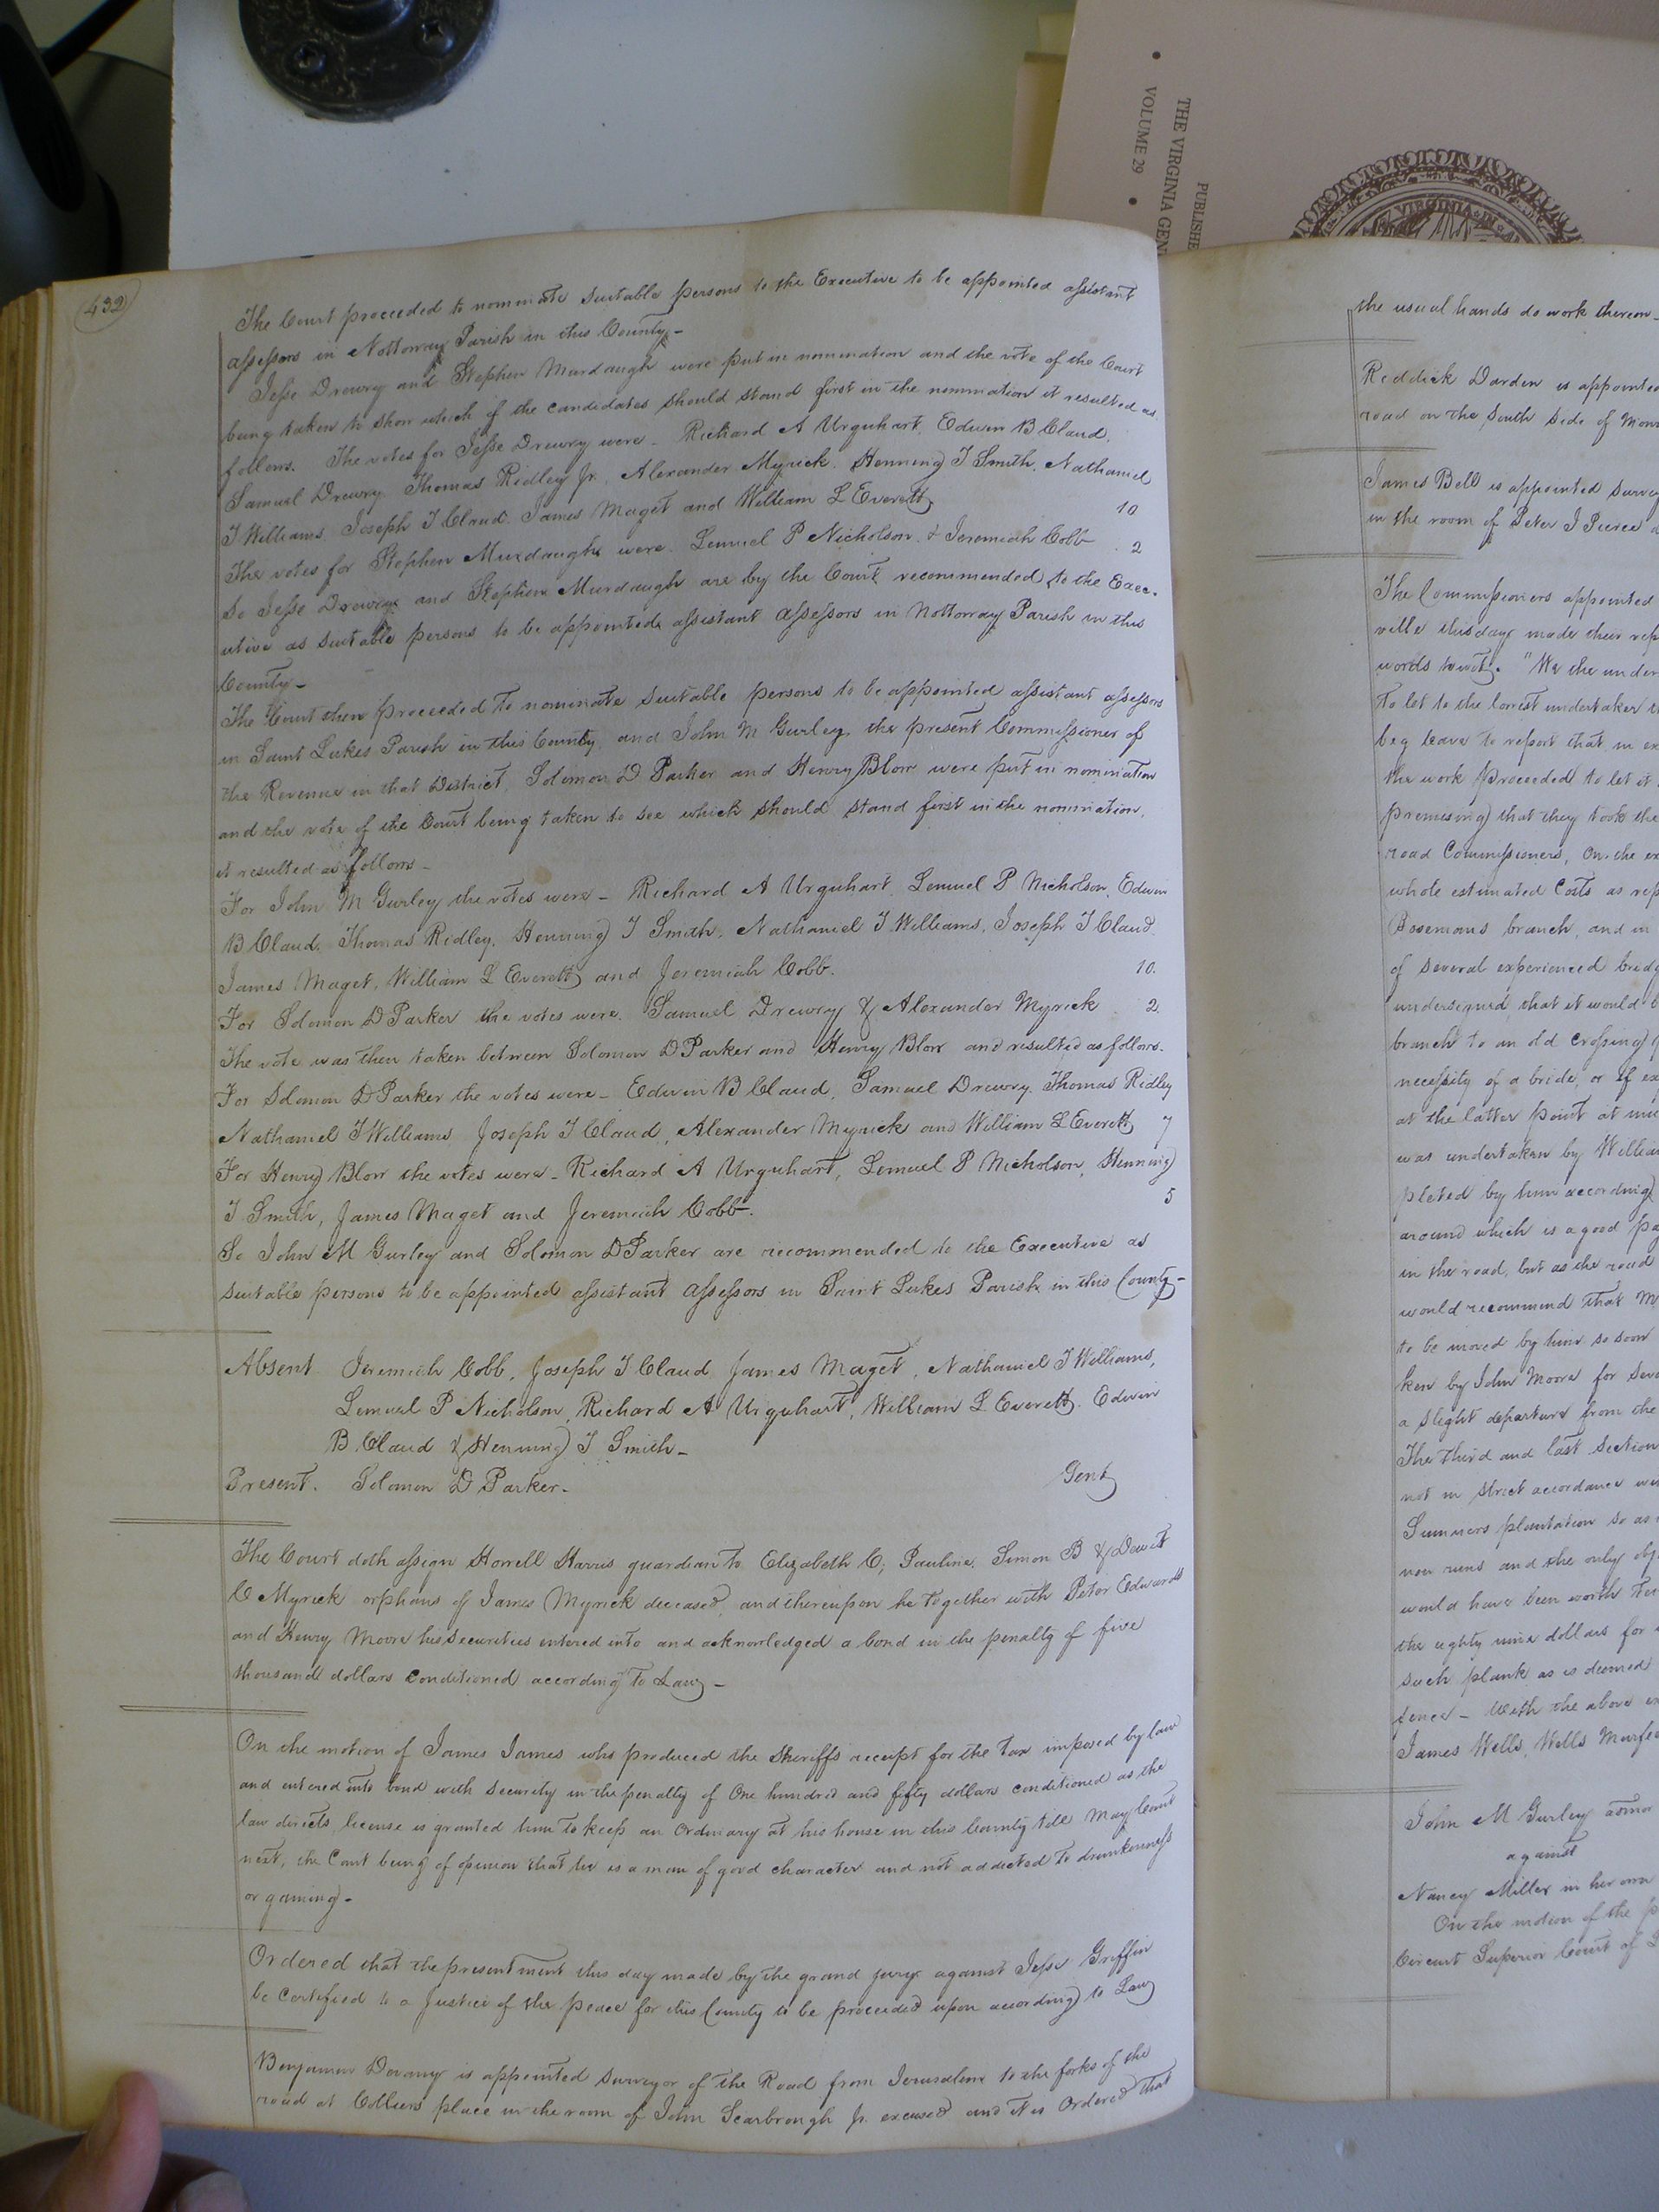 PUBLISHE
THE VIRGINIA GEN
• VOLUME 29 •
VIRGINIA IN
432
The Court proceeded to nominate suitable persons to the Executive to be appointed assistant
assessors in Nottoway Parish in this County -
Jesse Drewry and Stephen Murdaugh were put in nomination and the vote of the Court
being taken to show which of the candidates should stand first in the nomination it resulted as
follows. The votes for Jesse Drewry were - Richard A Urquhart, Edwin B Claud,
Samuel Drewry, Thomas Ridley Jr, Alexander Myrick, Henning T Smith, Nathaniel
T Williams, Joseph T Claud, James Maget and William L Everett 10
The votes for Stephen Murdaugh were. Lemuel P Nicholson & Jeremiah Cobb 2
So Jesse Drewry and Stephen Murdaugh are by the Court recommended to the Exec-
utive as suitable persons to be appointed assistant assessors in Nottoway Parish in this
County -
The Court then proceeded to nominate suitable persons to be appointed assistant assessors
in Saint Lukes Parish in this County, and John M Gurley, the present Commissioner of
the Revenue in that District, Solomon D Parker and Henry Blow were put in nomination
and the vote of the Court being taken to see which should stand first in the nomination,
it resulted as follows -
For John M Gurley the votes were - Richard A Urquhart, Lemuel P Nicholson, Edwin
B Claud, Thomas Ridley, Henning T Smith, Nathaniel T Williams, Joseph T Claud
James Maget, William L Everett and Jeremiah Cobb. 10.
For Solomon D Parker the votes were. Samuel Drewry & Alexander Myrick 2
The vote was then taken between Solomon D Parker and Henry Blow and resulted as follows -
For Solomon D Parker the votes were - Edwin B Claud, Samuel Drewry, Thomas Ridley
Nathaniel T Williams, Joseph T Claud, Alexander Myrick and William L Everett 7
For Henry Blow the votes were - Richard A Urquhart, Lemuel P Nicholson, Henning
T Smith, James Maget and Jeremiah Cobb. 5
So John M Gurley and Solomon D Parker are recommended to the Executive as
suitable persons to be appointed assistant assessors in Saint Lukes Parish in this County -
Absent. Jeremiah Cobb, Joseph T Claud, James Maget, Nathaniel T Williams,
Lemuel P Nicholson, Richard A Urquhart, William L Everett, Edwin
B. Claud & Henning T Smith -
Present. Solomon D Parker - Gent
The Court doth assign Howell Harris guardian to Elizabeth C, Paulina, Simon B & Dewit
C Myrick orphans of James Myrick deceased, and thereupon he together with Peter Edwards
and Henry Moore his securities entered into and acknowledged a bond in the penalty of five
thousand dollars conditioned according to Law -
On the motion of James James who produced the Sheriffs receipt for the tax imposed by law
and entered into bond with security in the penalty of One hundred and fifty dollars conditioned as the
law directs, license is granted him to keep an Ordinary at his house in this County till May Court
next, the Court being of opinion that he is a man of good character and not addicted to drunkenness
or gaming -
Ordered that the presentment this day made by the grand jury against Jesse Griffin
be certified to a Justice of the peace for this County to be proceeded upon according to Law
Benjamin is appointed surveyor of the Road from Jerusalem to the forks of the
road at Colliers place in the room of John Scarbrough Jr. excused and it is Ordered that
the usual hands do work thereon -
Reddick Darden is appointed
road on the South side of
James Bell is appointed
in the room of Peter J Pierce
The Commissioners appointed
ville this day made their
words towit. "We the
To let to the lowest undertaker
beg leave to report that in
the work proceeded to let it
premising that they took the
road Commissioners, On the
whole estimated Costs as
branch, and in
of several experienced
undersigned that it would
branch to an old crossing
necessity of a bride, or if
at the latter point at
was undertaken by
pleted by him according
around which is a good
in the road, but as the road
would recommend that
to be moved by him so soon
ken by John Moore for
a slight departure from the
The third and last section
not in strict accordance
Summers plantation so as
now runs and the only
would have been worth
the eighty nine dollars for
such plank as is deemed
fence - With the above
James Wells, Wells
John M Gurley admor
against
Nancy Miller in her own
On the motion of the
Circuit Superior Court of